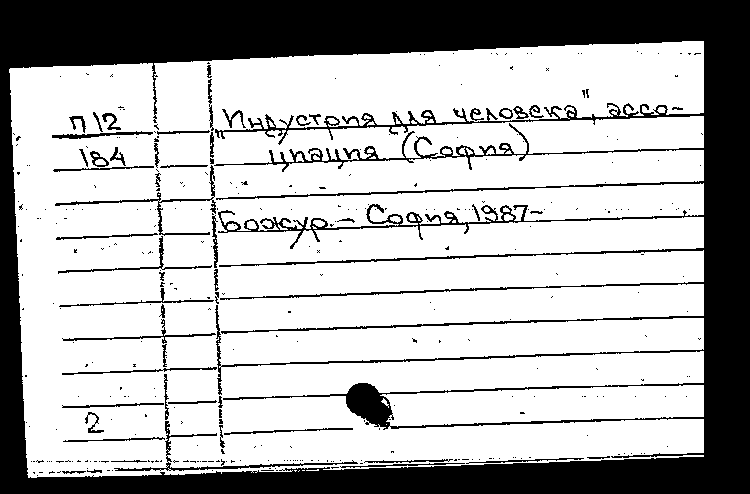 П12 „Индустрия для человека", ассо-
184 циация (София)
Божур. – София, 1987-
2